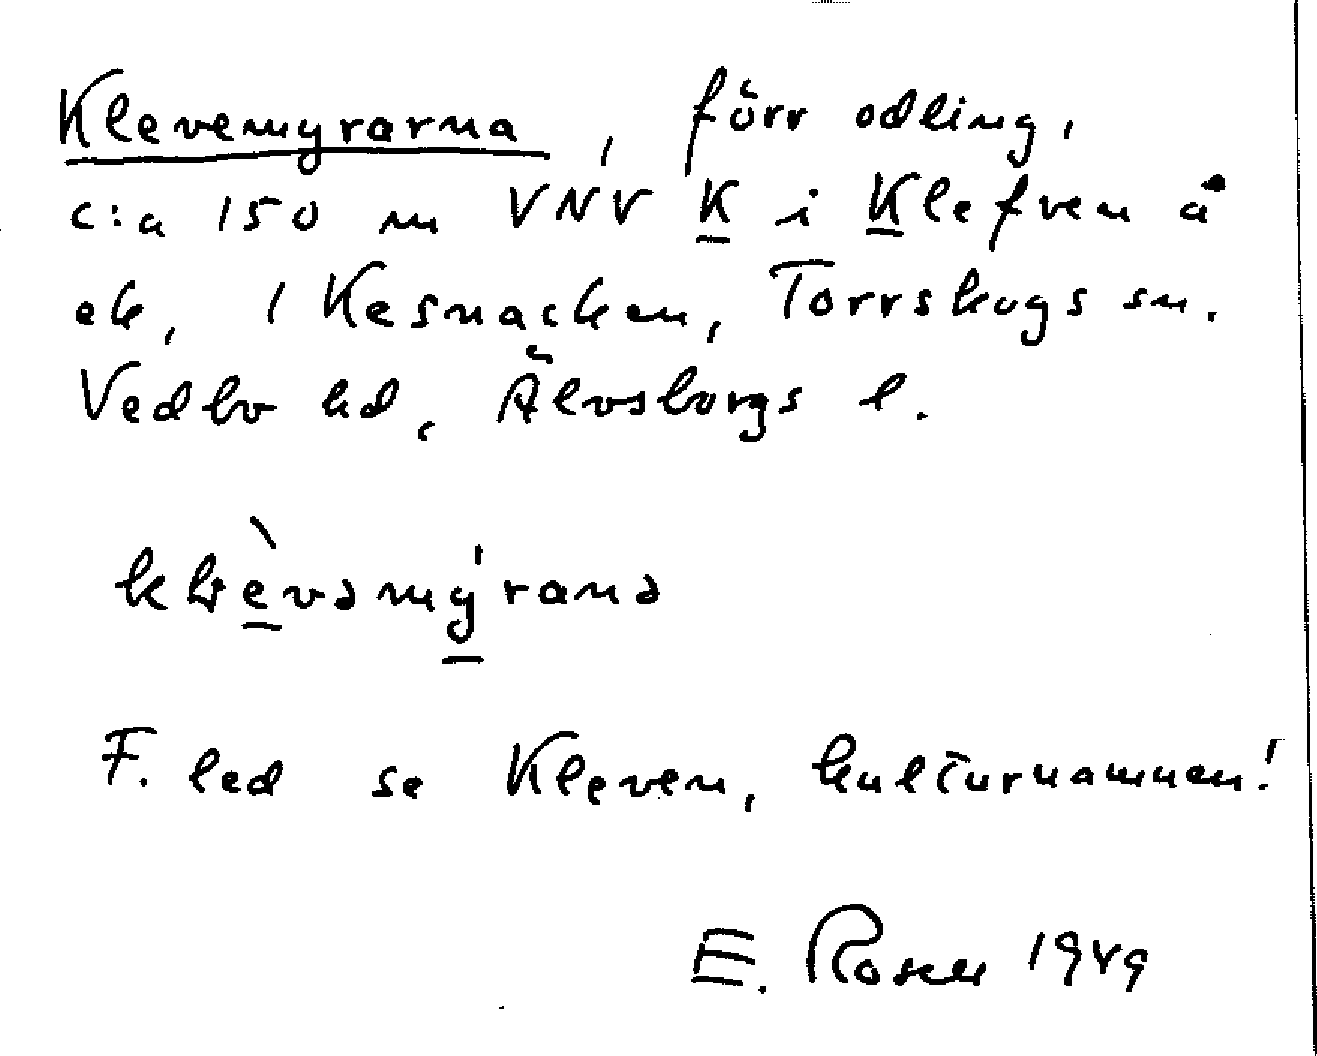 Klevemyrarna, förr odling,
c:a 150 m VNV K i Klefven å
ek, 1 Kesnacken, Torrskogs sn.
Vedbo hd, Älvsborgs l.
F. led se Kleven, kulturnamnen!
E. Rosen 1949